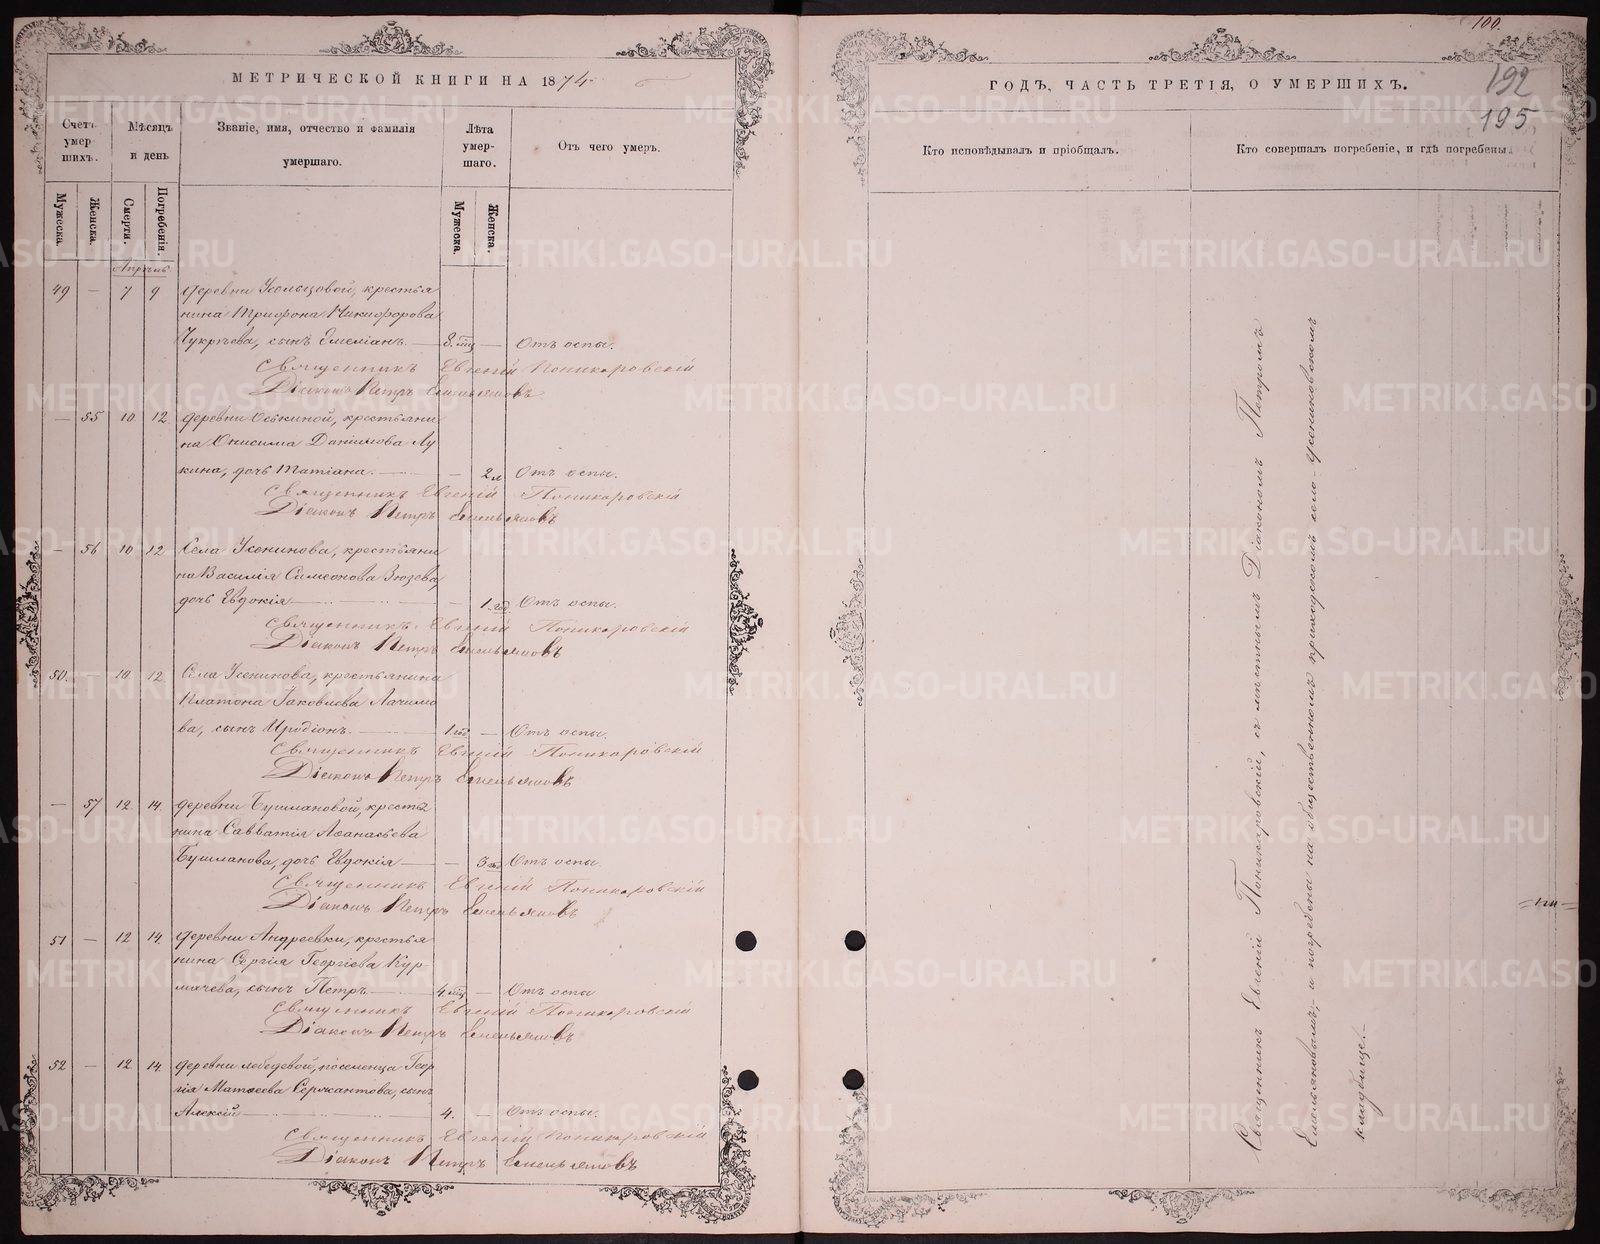 МЕТРИЧЕСКОЙ КНИГИ НА 1874
Счетъ умерших.
Мѣсяцъ и день
Званіе, имя, отчество и фамилія умершаго.
Лѣта умершаго.
Отъ чего умеръ.
Мужеска.
Женска.
Смерти.
Погребенія.
Мужеска.
Женска.
Апрѣль
49 — 7 9 деревни крестья
нина Трифона Никифорова
сынъ Емеліанъ. — 8. мц — Отъ оспы.
Священникъ Евгеній Поникаровскій
Діаконъ Петръ Емельяновъ
— 55 10 12 деревни Оськиной, крестьяни
на Онисима Данилова Лу
кина, дочь Татіана. — — 2 л Отъ оспы.
Священникъ Евгеній Поникаровскій
Діаконъ Петръ Емельяновъ
— 56 10 12 Села Усенинова, крестьяни
на Василія Симеонова Зюзева,
дочь Евдокія — — 1. год Отъ оспы.
Священникъ Евгеній Поникаровскій
Діаконъ Петръ Емельяновъ
50. — 10 12 Села Усенинова, крестьянина
Платона Іаковлева Лачимо
ва, сынъ Иродіонъ. — 1 год — Отъ оспы.
Священникъ Евгеній Поникаровскій
Діаконъ Петръ Емельяновъ
— 57 12 14. деревни Бушмановой, крестья
нина Савватія Аѳанасьева
Бушманова, дочь Евдокія — — 3 Отъ оспы.
Священникъ Евгеній Поникаровскій
Діаконъ Петръ Емельяновъ
51 — 12 14. деревни Андреевки, крестья
нина Сергія Георгіева Кур-
мачева, сынъ Петръ — 4. мц — Отъ оспы
Священникъ Евгеній Поникаровскій
Діаконъ Петръ Емельяновъ
52 — 12 14. деревни Лебедевой, поселенца Геор
гія Матвеева Сержантова, сынъ
Алексій — 4. — Отъ оспы.
Священникъ Евгеній Поникаровскій
Діаконъ Петръ Емельяновъ
100.
192
195
ГОДЪ, ЧАСТЬ ТРЕТІЯ, О УМЕРШИХЪ.
Кто исповѣдывалъ и пріобщалъ.
Кто совершалъ погребеніе, и гдѣ погребены.
Священникъ Евгеній Поникаровскій, съ мѣстнымъ Діакономъ Петромъ
Емельяновымъ; и погребены на общественномъ приходскомъ села Усениновскомъ
кладбище.
METRIKI.GASO-URAL.RU